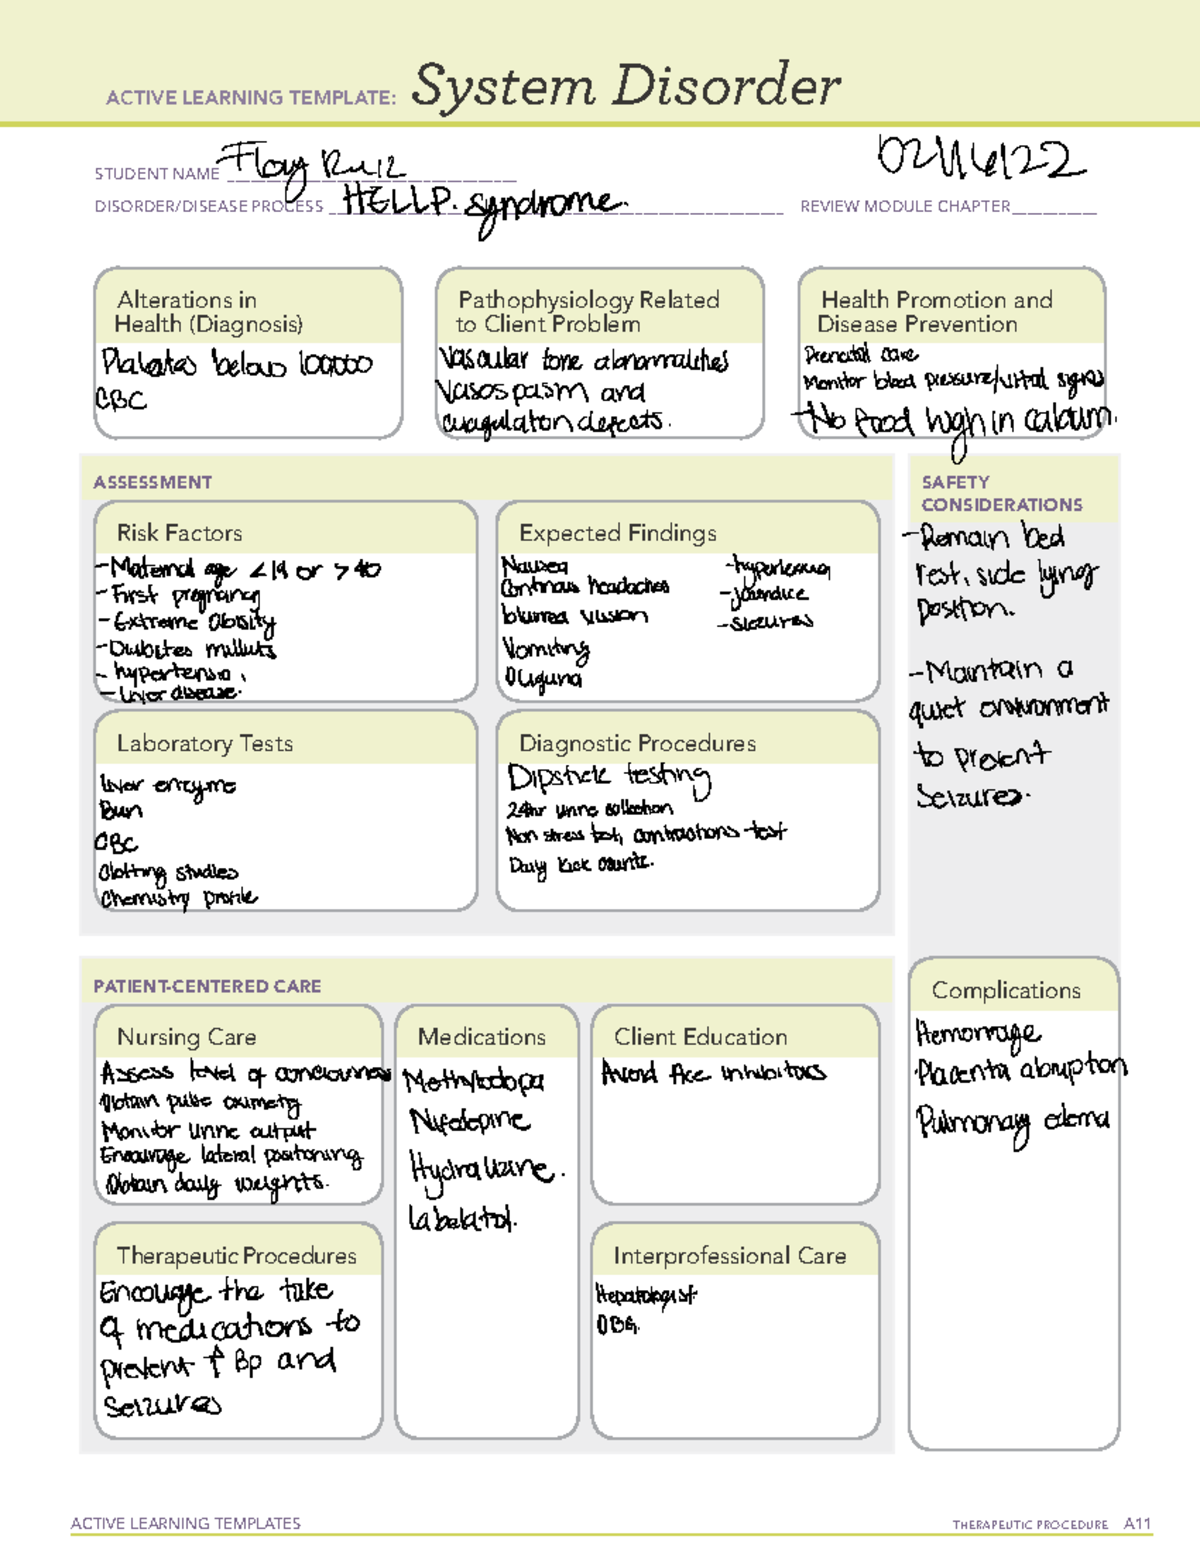 ACTIVE LEARNING TEMPLATE: System Disorder
STUDENT NAME Floy Ruiz
02/16/22
DISORDER/DISEASE PROCESS HELLP. syndrome.
REVIEW MODULE CHAPTER
Alterations in
Health (Diagnosis)
Platates below 100,000
CBC
Pathophysiology Related
to Client Problem
Vascular tone abnormalities
Vasospasm and
coagulation defects.
Health Promotion and
Disease Prevention
Prenatal care
Monitor blood pressure/vital signs
-No food high in calcium.
ASSESSMENT
Risk Factors
-Maternal age <19 or >40
-First pregnancy
-Extreme obisity
-Diabites millets
-hypertensio
-Liver disease.
Expected Findings
Nausea
Continous headaches
blurred vision
Vomiting
Oliguria
-hypertension
-jaundice
-seizures
SAFETY
CONSIDERATIONS
-Remain bed
rest, side lying
position.
-Maintain a
quiet environment
to prevent
seizures.
Laboratory Tests
liver enzyme
Bun
CBC
Clotting studies
Chemistry profile
Diagnostic Procedures
Dipstick testing
24hr urine collection
Non stress test, contractions test
Daily kick counts.
PATIENT-CENTERED CARE
Nursing Care
Assess level of conciousness
Obtain pulse oximetry
Monitor urine output
Encourage lateral positioning
Obtain daily weights.
Medications
Methyldopa
Nifedepine
Hydralizine.
labelatol.
Client Education
Avoid Ace inhibitors
Complications
Hemorrage
Placenta abruption
Pulmonary edema
Therapeutic Procedures
Encourge the take
of medications to
prevent ↑ Bp and
seizures
Interprofessional Care
Hepatologist
OBG.
ACTIVE LEARNING TEMPLATES
THERAPEUTIC PROCEDURE A11